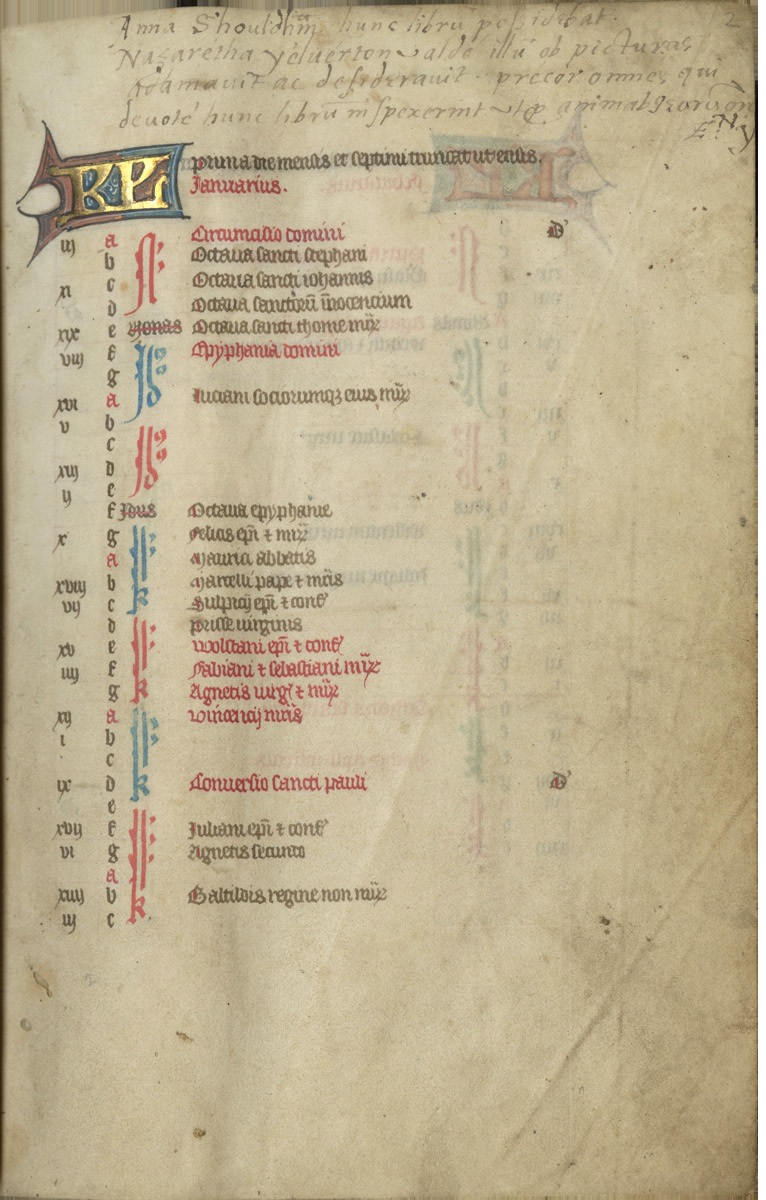 Anna Shouldhm̄ hunc librū possidebat
Nazaretha Yeluerton valde illū ob picturas
Adamavit ac desideravit. precor omnes qui
devotè hunc librū inspexerint
E: N: y
2
KL prima die mensis et septima truncat ut ensis.
Januarius.
iij a Circumcisio domini D'
b Octaua sancti stephani
xi c Octaua sancti iohannis
d Octaua sanctorū innocencium
xix e Nonas Octaua sancti thome mr̄
viij f Epyphania domini
g
xvi a luciani sociorumqz eius mr̄
v b
c
xiij d
ij e
f Idus Octaua epyphanie
x g felicis ep̄i ⁊ mr̄
a Mauricii abbatis
xviij b Marcelli pape ⁊ mr̄is
vij c Sulpicij ep̄i ⁊ conf'
d prisce uirginis
xv e wolstani ep̄i ⁊ conf'
iiij f fabiani ⁊ sebastiani mr̄
g Agnetis uirg' ⁊ mr̄
xij a vincencij mr̄is
i b
c k
ix d Conuersio sancti pauli D'
e
xvij f Juliani ep̄i ⁊ conf'
vi g Agnetis secundo
a
xiiij b Baltildis regine non mr̄
iij c k